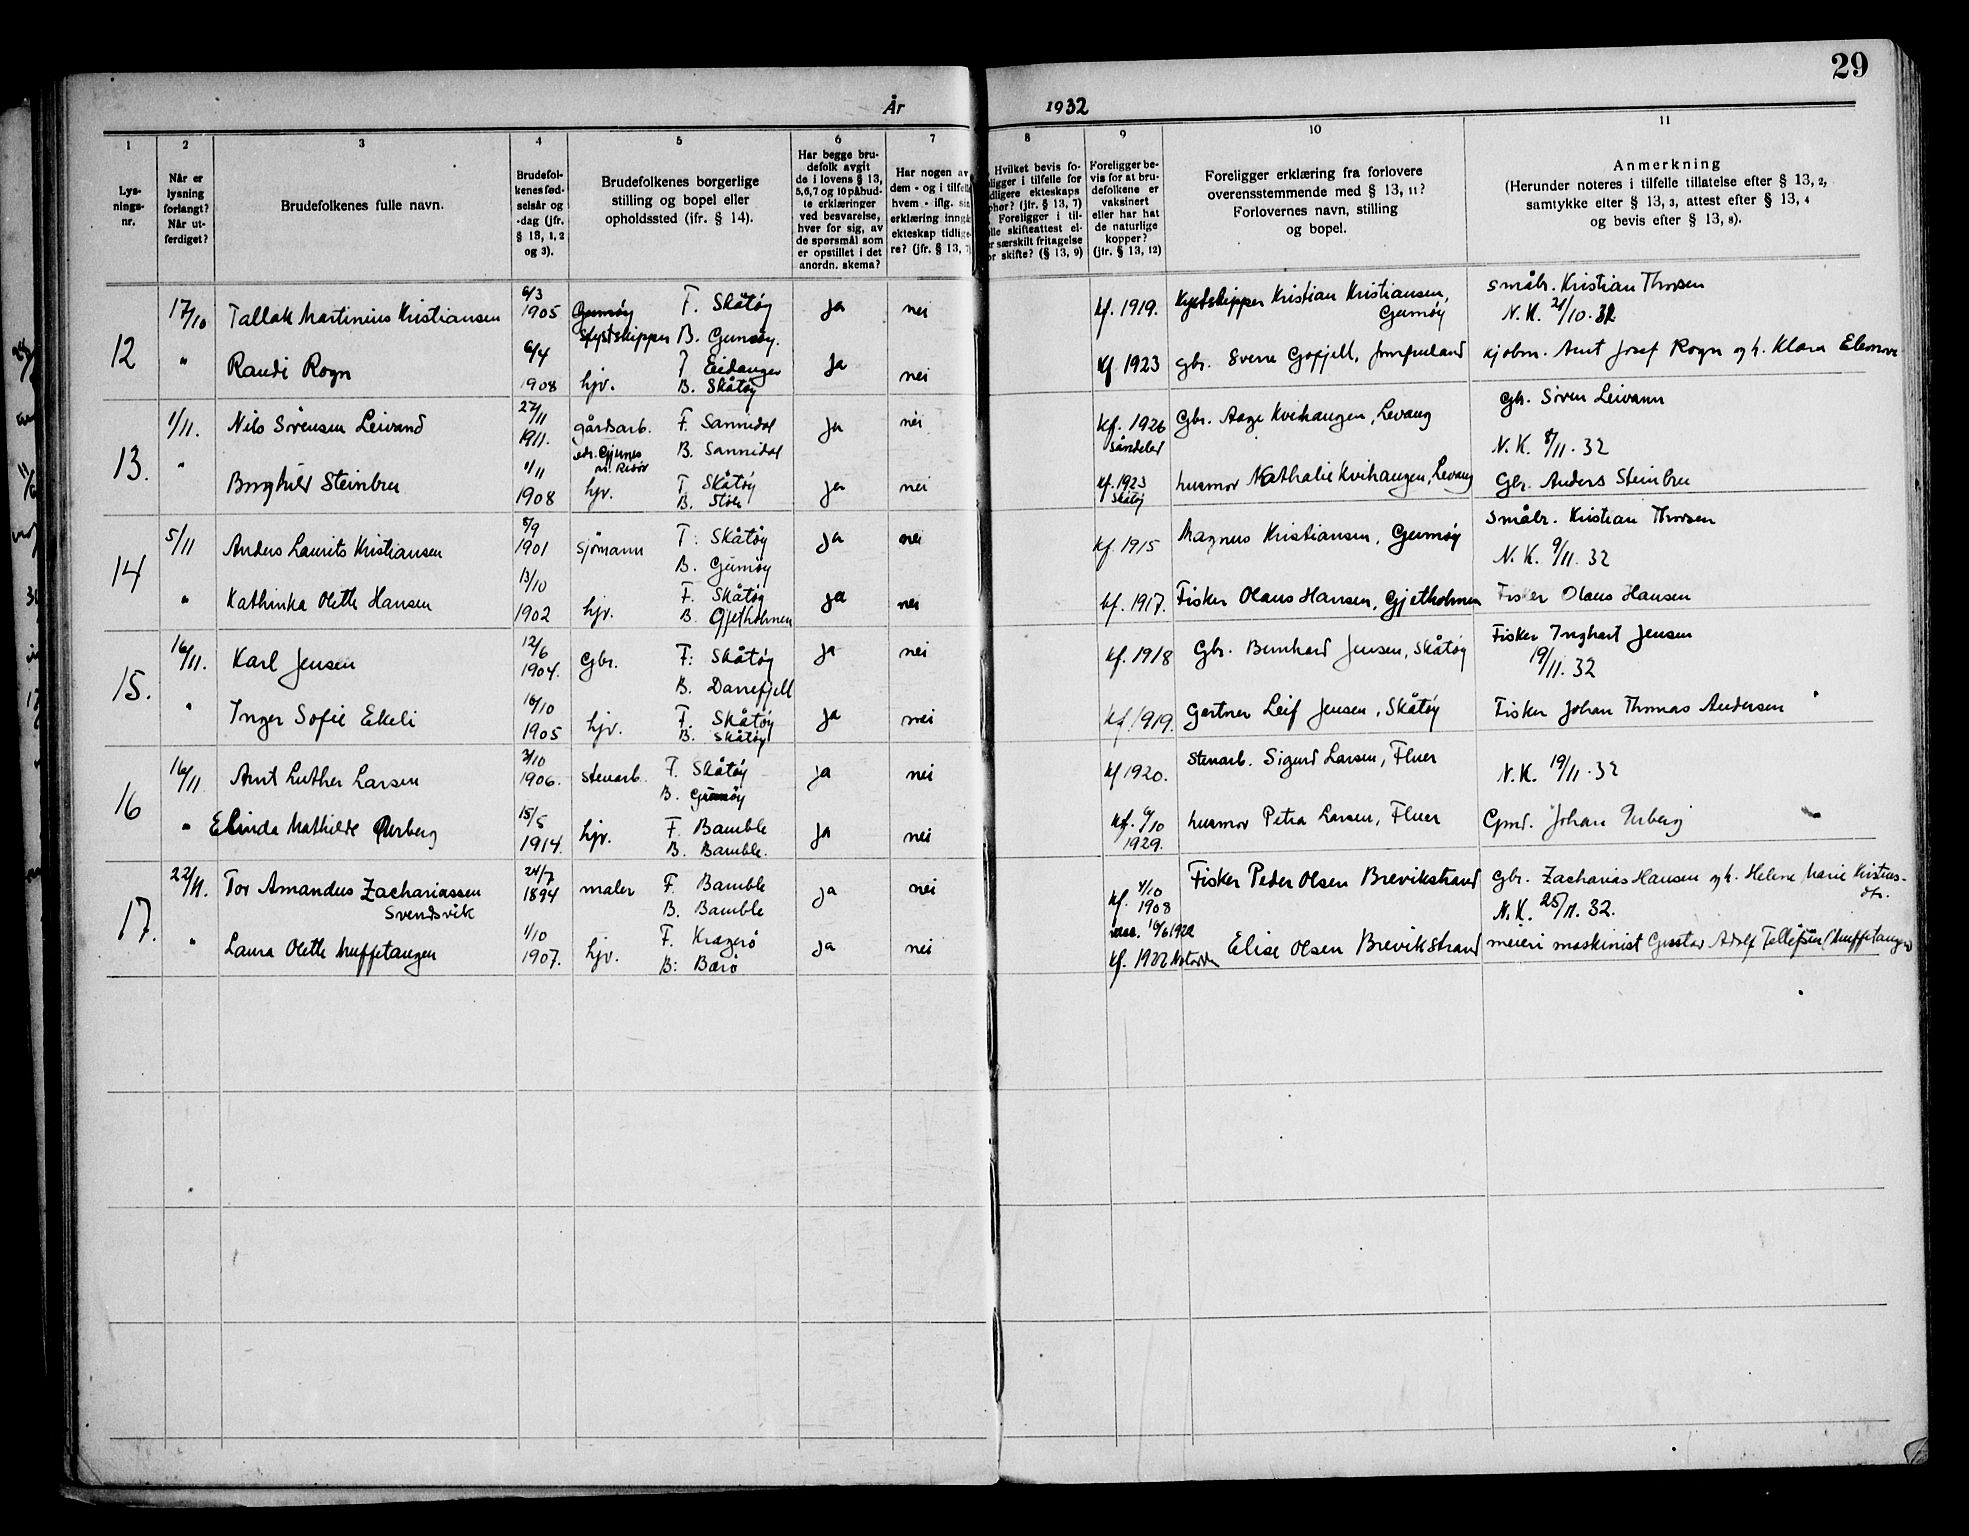 29
År 1932
1 2 3 4 5 6 7 8 9 10 11
Lys-
nings-
nr.
Når er
lysning
forlangt?
Når ut-
ferdiget?
Brudefolkenes fulle navn.
Brudefol-
kenes fød-
selsår og
-dag (jfr.
§ 13, 1, 2
og 3).
Brudefolkenes borgerlige
stilling og bopel eller
opholdssted (jfr. § 14).
Har begge bru-
defolk avgit
de i lovens § 13,
5, 6, 7 og 10 påbud-
te erklæringer
ved besvarelse,
hver for sig, av
de spørsmål som
er opstillet i det
anordn. skema?
Har nogen av
dem - og i tilfelle
hvem - iflg. sin
erklæring inngå
ekteskap tidlige-
re? (jfr. § 13, 7
Hvilket bevis fo-
ligger i tilfelle for
idligere ekteskaps
phør? (jfr. § 13, 7)
Foreligger i til-
elle skifteattest el-
r særskilt fritagelse
or skifte? (§ 13, 9)
Foreligger be-
vis for at bru-
defolkene er
vaksinert
eller har hat
de naturlige
kopper?
(jfr. § 13, 12)
Foreligger erklæring fra forlovere
overensstemmende med § 13, 11?
Forlovernes navn, stilling
og bopel.
Anmerkning
(Herunder noteres i tilfelle tillatelse efter § 13, 2,
samtykke efter § 13, 3, attest efter § 13, 4
og bevis efter § 13, 8).
12
17/10 Tallak Martinius Kristiansen 6/3 1905 Gumøy F. Skåtøy ja nei kf. 1919. Kystskipper Kristian Kristiansen, Gumøy småbr. Kristian Thorsen
kystskipper B. Gumøy. N. K. 21/10. 32
" Randi Rogn 6/4 1908 hjv. F Eidanger B. Skåtøy ja nei kf. 1923 gbr. Sverre Gofjell, Jomfruland kjøbm. Arnt Josef Rogn og h. Klara Eleonore
13.
1/11. Nils Sørensen Leivand 27/11 1911. gårdsarb. F. Sannidal ja nei kf. 1926 Søndeled Gbr. Aage Kvihaugen, Levang Gbr. Søren Leivann
B. Sannidal N. K. 8/11. 32
" Borghild Steinbru 1/11 1908 hjv. F Skåtøy B. Støle ja nei kf. 1923 Skåtøy husmor Nathalie Kvihaugen, Levang Gbr. Anders Steinbru
14
5/11 Anders Laurits Kristiansen 8/9 1901 sjømann F. Skåtøy B. Gumøy ja nei kf. 1915 Magnus Kristiansen, Gumøy Småbr. Kristian Thorsen
N. K. 9/11. 32
" Kathinka Olette Hansen 13/10 1902 hjv. F. Skåtøy B. Gjetholmen ja nei kf. 1917. Fisker Olaus Hansen, Gjetholmen Fisker Olaus Hansen
15.
16/11. Karl Jensen 12/6 1904. Gbr. F: Skåtøy B. Danefjell ja nei kf. 1918 Gbr. Bernhard Jensen, Skåtøy Fisker Inghart Jensen
19/11. 32
" Inger Sofie Ekeli 16/10 1905 hjv. F. Skåtøy B. Skåtøy ja nei kf. 1919. Gartner Leif Jensen, Skåtøy Fisker Johan Thomas Andersen
16
16/11 Arnt Luther Larsen 2/10 1906. stenarb. F. Skåtøy B. Gumøy ja nei kf 1920. Stenarb. Sigurd Larsen, Fluer N.K. 19/11. 32
" Elinda Mathilde Ørberg 15/5 1914. hjv. F. Bamble B. Bamble. ja nei kf. 6/10 1929. husmor Petra Larsen, Fluer Gmd. Johan Ørberg
17.
22/11. Tor Amandus Zachariassen Svendsvik 24/7 1894 maler F. Bamble B. Bamble ja nei kf. 4/10 1908 Fisker Peder Olsen Brevikstrand Gbr. Zacharias Hansen og h. Helene Marie Kristens-dtr.
N.K. 25/11. 32.
" Laura Olette Muffetangen 1/10 1907. hjv. F. Kragerø B: Bærø ja nei vacc. 16/6 1922 kf. 1922 Notodden Elise Olsen Brevikstrand meieri maskinist Gustav Adolf Tellefsen (Muffetangen)